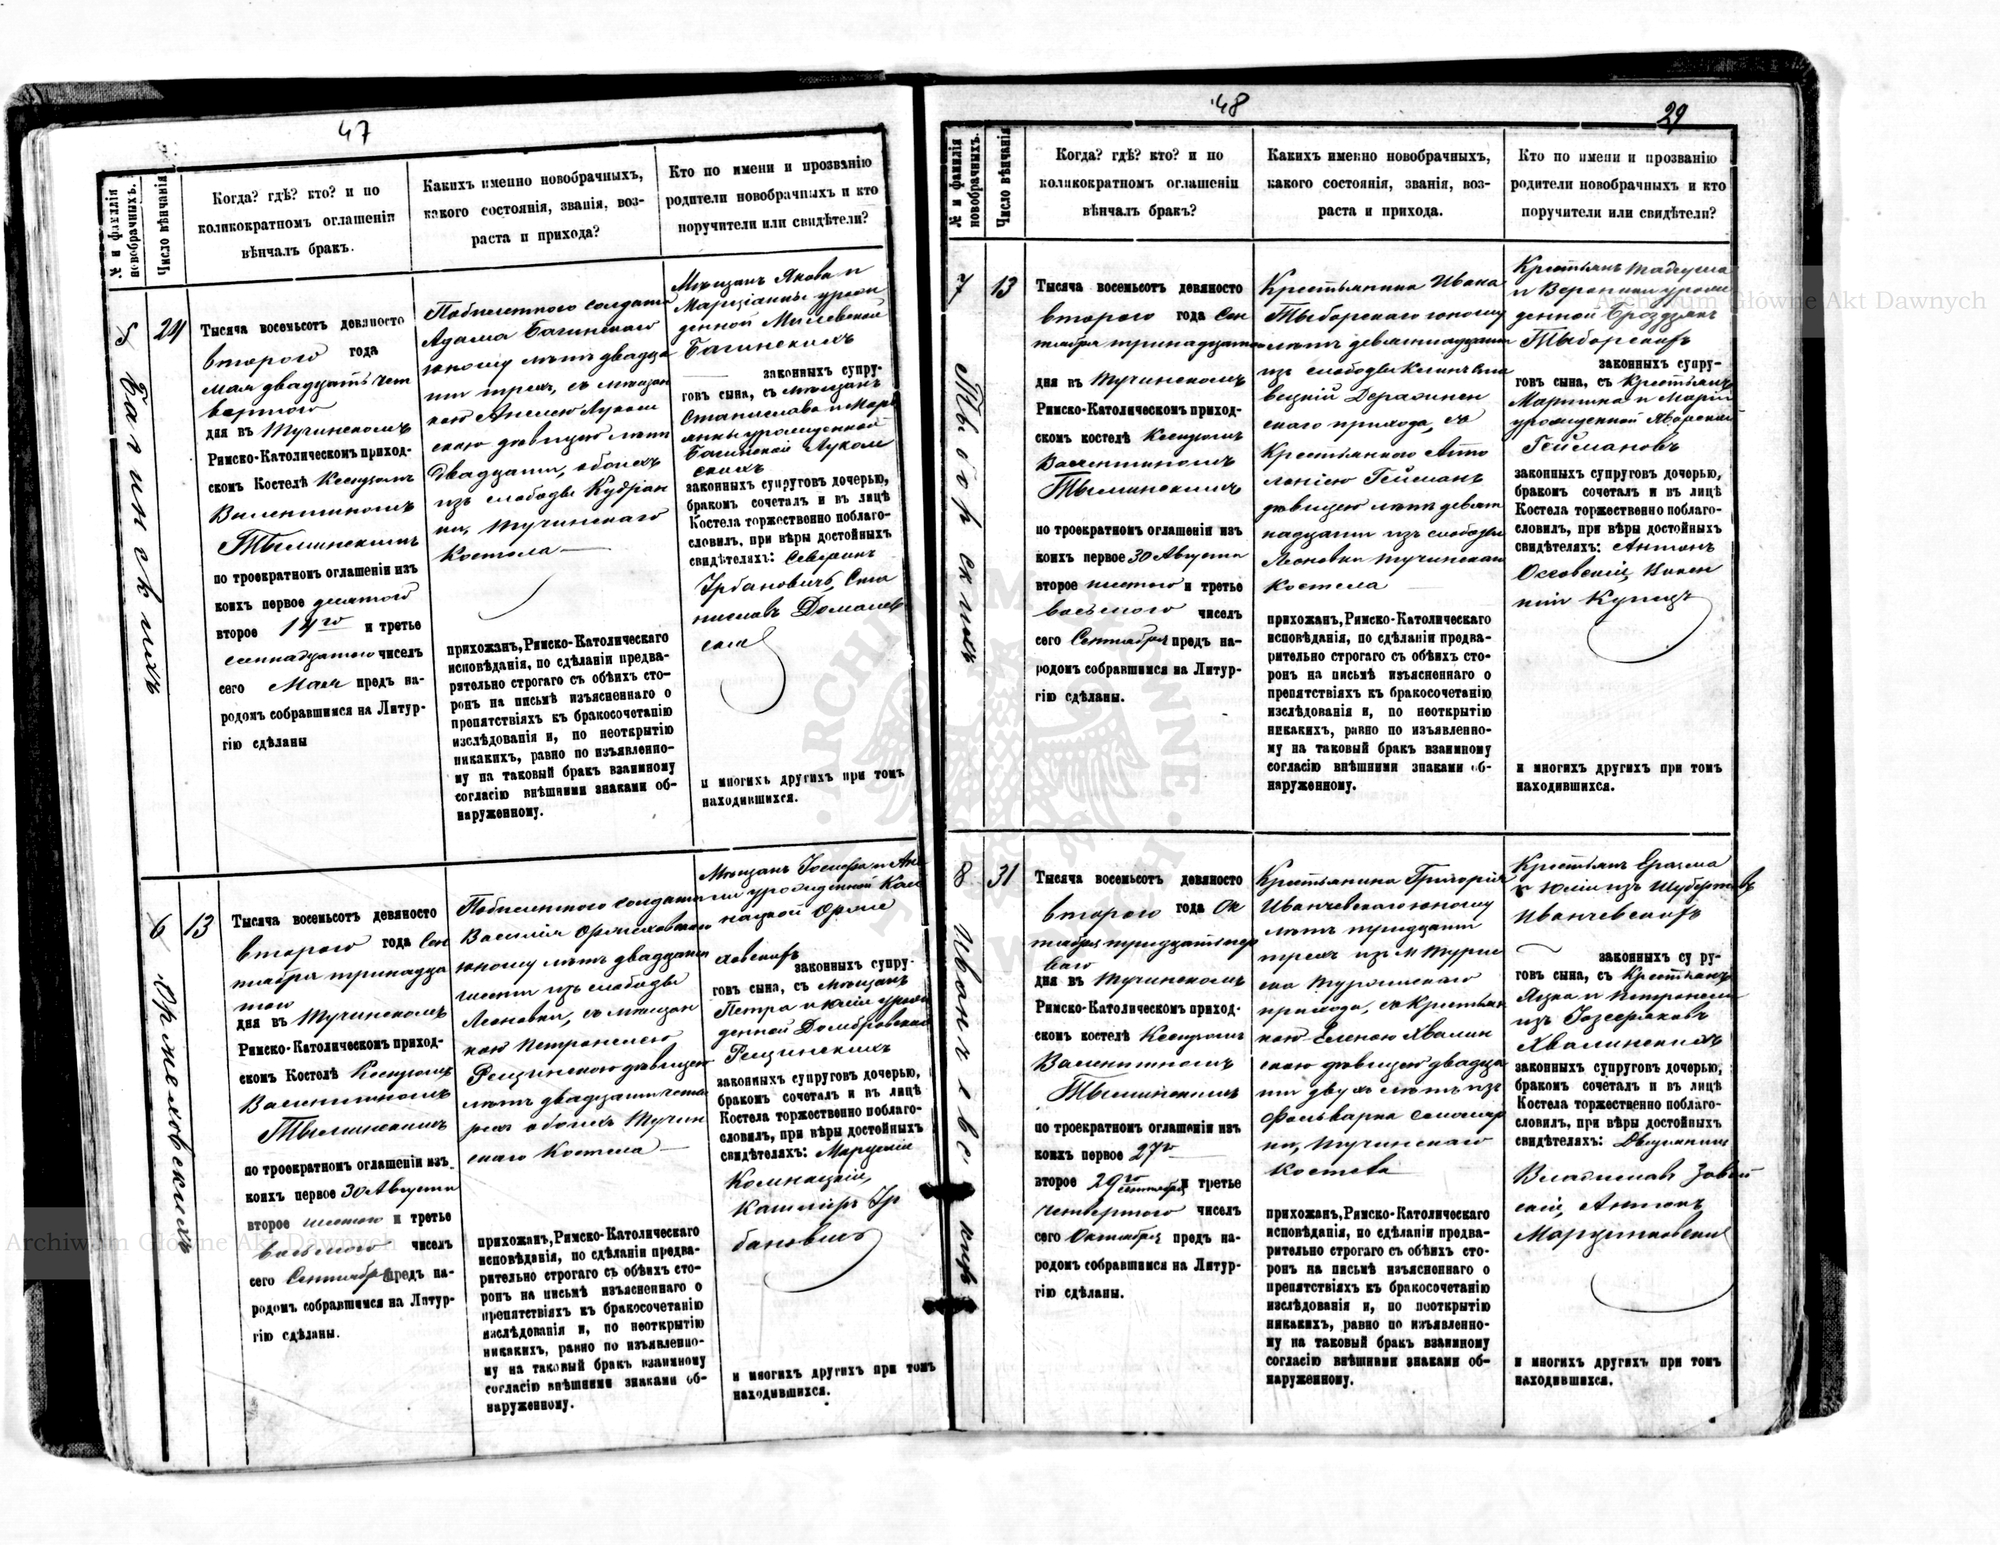 47
№ и фамилія новобрачныхъ.
Число вѣнчанія
Когда? гдѣ? кто? и по
коликократномъ оглашеніи
вѣнчалъ бракъ.
Каких именно новобрачныхъ,
какого состоянія, званія, воз-
раста и прихода?
Кто по имени и прозванію
родители новобрачныхъ и кто
поручители или свидѣтели?
5
24
Тысяча восемьсотъ девяносто
втораго года
мая двадцать чет
вертого
дня въ Тучинскомъ
Римско-Католическомъ приход-
скомъ Костелѣ Ксендзомъ
Валентиномъ
Тыминскимъ
по троекратномъ оглашеніи изъ
коихъ первое десятого
второе 14го и третье
семнадцатого чиселъ
сего Мая предъ на-
родомъ собравшимся на Литур-
гію сдѣланы
Адама Багинскаго
юношу лѣтъ двадца
ти трехъ, съ мѣщан
кою Анелею Луком
скою дѣвицею лѣтъ
двадцати, обоихъ
изъ слободы Кудрян
ки, Тучинскаго
Костела
прихожан, Римско-Католическаго
исповѣданія, по сдѣланіи предва-
рительно строгаго съ обѣихъ сто-
ронъ на письмѣ изъясненнаго о
препятствіяхъ къ бракосочетанію
изслѣдованія и, по неоткрытію
никакихъ, равно по изъявленно-
му на таковый бракъ взаимному
согласію внѣшними знаками об-
наруженному.
Мѣщанъ Якова и
Марціанны урож
денной Милевской
Багинскихъ
законныхъ супру-
говъ сына, съ Мѣщанъ
Станислава и Марі
анны урожденной
Багинской Луком
скихъ
законныхъ супруговъ дочерью,
бракомъ сочеталъ и въ лицѣ
Костела торжественно поблаго-
словилъ, при вѣры достойныхъ
свидѣтеляхъ: Северинъ
Урбановичъ, Ста
ниславъ Домалев
скій
и многихъ другихъ при томъ
находившихся.
Багинскихъ
6
13
Тысяча восемьсотъ девяносто
втораго года Сен
тября тринадца
того
дня въ Тучинскомъ
Римско-Католическомъ приход-
скомъ Костелѣ Ксендзомъ
Валентиномъ
Тыминскимъ
по троекратномъ оглашеніи изъ
коихъ первое 30 Августа
второе шестого и третье
восьмого чиселъ
сего Сентября предъ на-
родомъ собравшимся на Литур-
гію сдѣланы.
юношу лѣтъ двадцати
шести изъ слободы
Леоновки, съ мѣщан
кою Петронелею
Рещинскою дѣвицею
лѣтъ двадцати четы
рехъ обоихъ Тучин
скаго Костела
прихожан, Римско-Католическаго
исповѣданія, по сдѣланіи предва-
рительно строгаго съ обѣихъ сто-
ронъ на письмѣ изъясненнаго о
препятствіяхъ къ бракосочетанію
изслѣдованія и, по неоткрытію
никакихъ, равно по изъявленно-
му на таковый бракъ взаимному
согласію внѣшними знаками об-
наруженному.
Мѣщанъ Іосифа и Ан
ны урожденной Кол
законныхъ супру-
говъ сына, съ Мѣщанъ
Петра и Юліи урож
денной Домбровской
Рещинскихъ
законныхъ супруговъ дочерью,
бракомъ сочеталъ и въ лицѣ
Костела торжественно поблаго-
словилъ, при вѣры достойныхъ
свидѣтеляхъ:
Казиміръ Ур
бановичъ
и многихъ другихъ при томъ
находившихся.
48
29
№ и фамилія новобрачныхъ.
Число вѣнчанія
Когда? гдѣ? кто? и по
коликократномъ оглашеніи
вѣнчалъ бракъ?
Каких именно новобрачныхъ,
какого состоянія, званія, воз-
раста и прихода.
Кто по имени и прозванію
родители новобрачныхъ и кто
поручители или свидѣтели?
7
13
Тыборскихъ
Тысяча восемьсотъ девяносто
втораго года Сен
тября тринадцатого
дня въ Тучинскомъ
Римско-Католическомъ приход-
скомъ костелѣ Ксендзомъ
Валентиномъ
Тыминскимъ
по троекратномъ оглашеніи изъ
коихъ первое 30 Августа
второе шестого и третье
восьмого чиселъ
сего Сентября предъ на-
родомъ собравшимся на Литур-
гію сдѣланы.
Крестьянина Ивана
Тыборскаго юношу
лѣтъ девятнадцати
Деражнен
скаго прихода, съ
Крестьянкою Апо
лоніею Гейманъ
дѣвицею лѣтъ девят
надцати изъ слободы
Леоновки Тучинскаго
Костела
прихожан, Римско-Католическаго
исповѣданія, по сдѣланіи предва-
рительно строгаго съ обѣихъ сто-
ронъ на письмѣ изъясненнаго о
препятствіяхъ къ бракосочетанію
изслѣдованія и, по неоткрытію
никакихъ, равно по изъявленно-
му на таковый бракъ взаимному
согласію внѣшними знаками об-
наруженному.
Крестьянъ Тадеуша
и Вероники урож
денной
Тыборскихъ
законныхъ супру-
говъ сына, съ Крестьянъ
Мартина и Маріи
урожденной Яворской
Геймановъ
законныхъ супруговъ дочерью,
бракомъ сочеталъ и въ лицѣ
Костела торжественно поблаго-
словилъ, при вѣры достойныхъ
свидѣтеляхъ: Антонъ
Оссовскій, Викен
тій Купецъ
и многихъ другихъ при томъ
находившихся.
8
31
Тысяча восемьсотъ девяносто
втораго года Ок
тября тридцать пер
ваго
дня въ Тучинскомъ
Римско-Католическомъ приход-
скомъ костелѣ Ксендзомъ
Валентиномъ
Тыминскимъ
по троекратномъ оглашеніи изъ
коихъ первое 27го
второе 29го Сентября и третье
четвертого чиселъ
сего Октября предъ на-
родомъ собравшимся на Литур-
гію сдѣланы.
Крестьянина Григорія
Иванчевскаго юношу
лѣтъ тридцати
трехъ изъ м Турій
ска Турійскаго
прихода, съ Крестьян
кою Еленою Хвалин
скою дѣвицею двадца
ти двухъ лѣтъ изъ
Фольварка
Тучинскаго
костела
прихожан, Римско-Католическаго
исповѣданія, по сдѣланіи предва-
рительно строгаго съ обѣихъ сто-
ронъ на письмѣ изъясненнаго о
препятствіяхъ къ бракосочетанію
изслѣдованія и, по неоткрытію
никакихъ, равно по изъявленно-
му на таковый бракъ взаимному
согласію внѣшними знаками об-
наруженному.
Крестьянъ Еразма
и Юліи изъ Шубертовъ
Иванчевскихъ
законныхъ супру-
говъ сына, съ Крестьянъ
Яцка и Петронели
изъ
Хвалинскихъ
законныхъ супруговъ дочерью,
бракомъ сочеталъ и въ лицѣ
Костела торжественно поблаго-
словилъ, при вѣры достойныхъ
свидѣтеляхъ: Дворянинъ
Владиславъ
Антонъ
Марцинковскій
и многихъ другихъ при томъ
находившихся.
Archiwum Główne Akt Dawnych
Archiwum Główne Akt Dawnych
ARCHIWUM GŁÓWNE AKT DAWNYCH